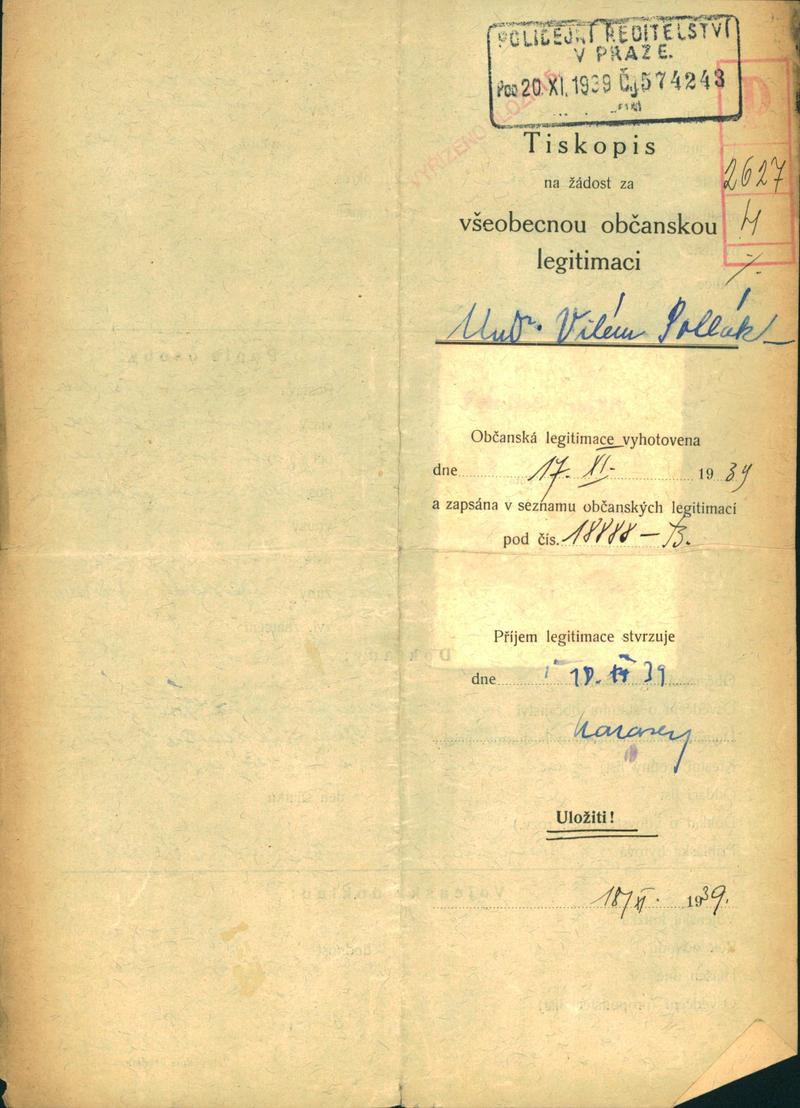 POLICEJNÍ ŘEDITELSTVÍ
V PRAZE.
20. XI. 1939 Čj. 574243
VYŘÍZENO
D
2627
H
Tiskopis
na žádost za
všeobecnou občanskou
legitimaci
Vilém Pollák
Občanská legitimace vyhotovena
dne 17. XI. 1939
a zapsána v seznamu občanských legitimací
pod čís. 18888 – B.
Příjem legitimace stvrzuje
dne 39
Uložiti!
18/XI. 1939.